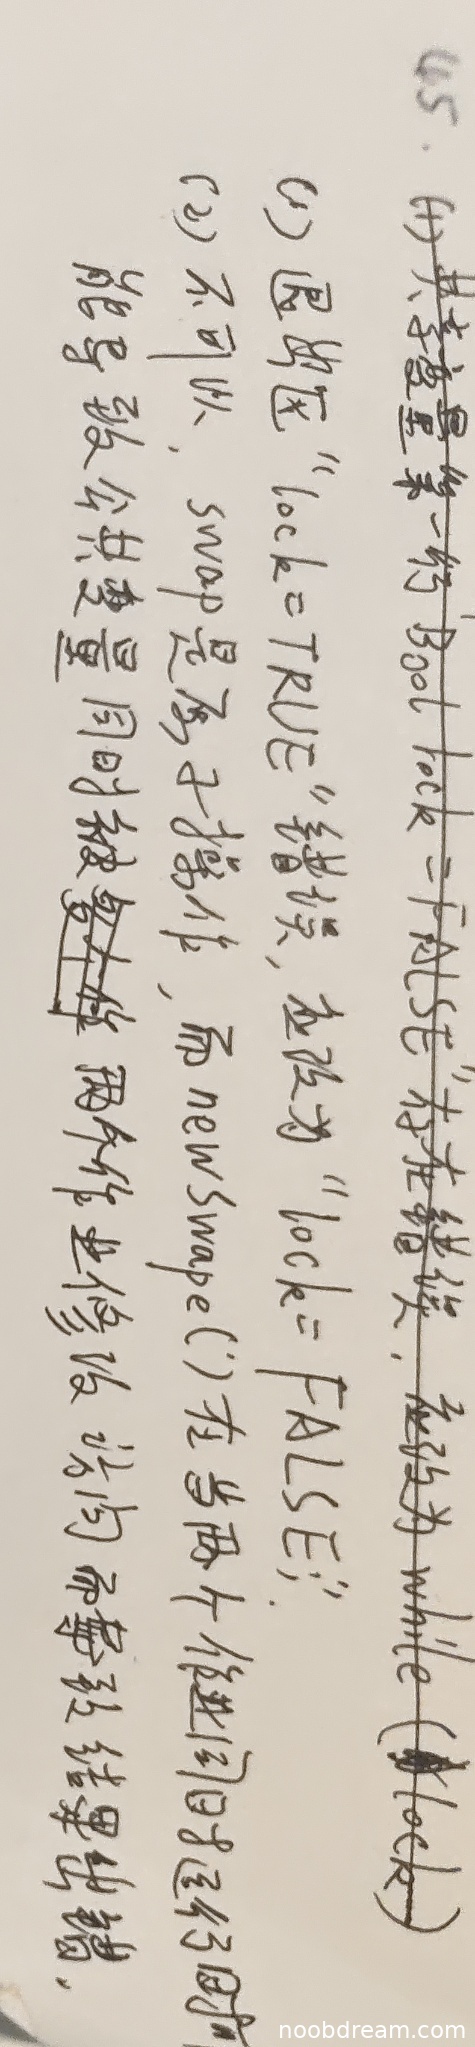 45. (1) 共享变量第一行 Bool lock = FALSE"存在错误, 应改为 while (lock)
(1) 退出区 "lock = TRUE" 错误, 应改为 "lock = FALSE;".
(2) 不可以, swap是原子操作, 而newSwape()在当两个进同时运行时
能导致公共变量同时被两个作业修改访问而导致结果出错.
noobdream.com